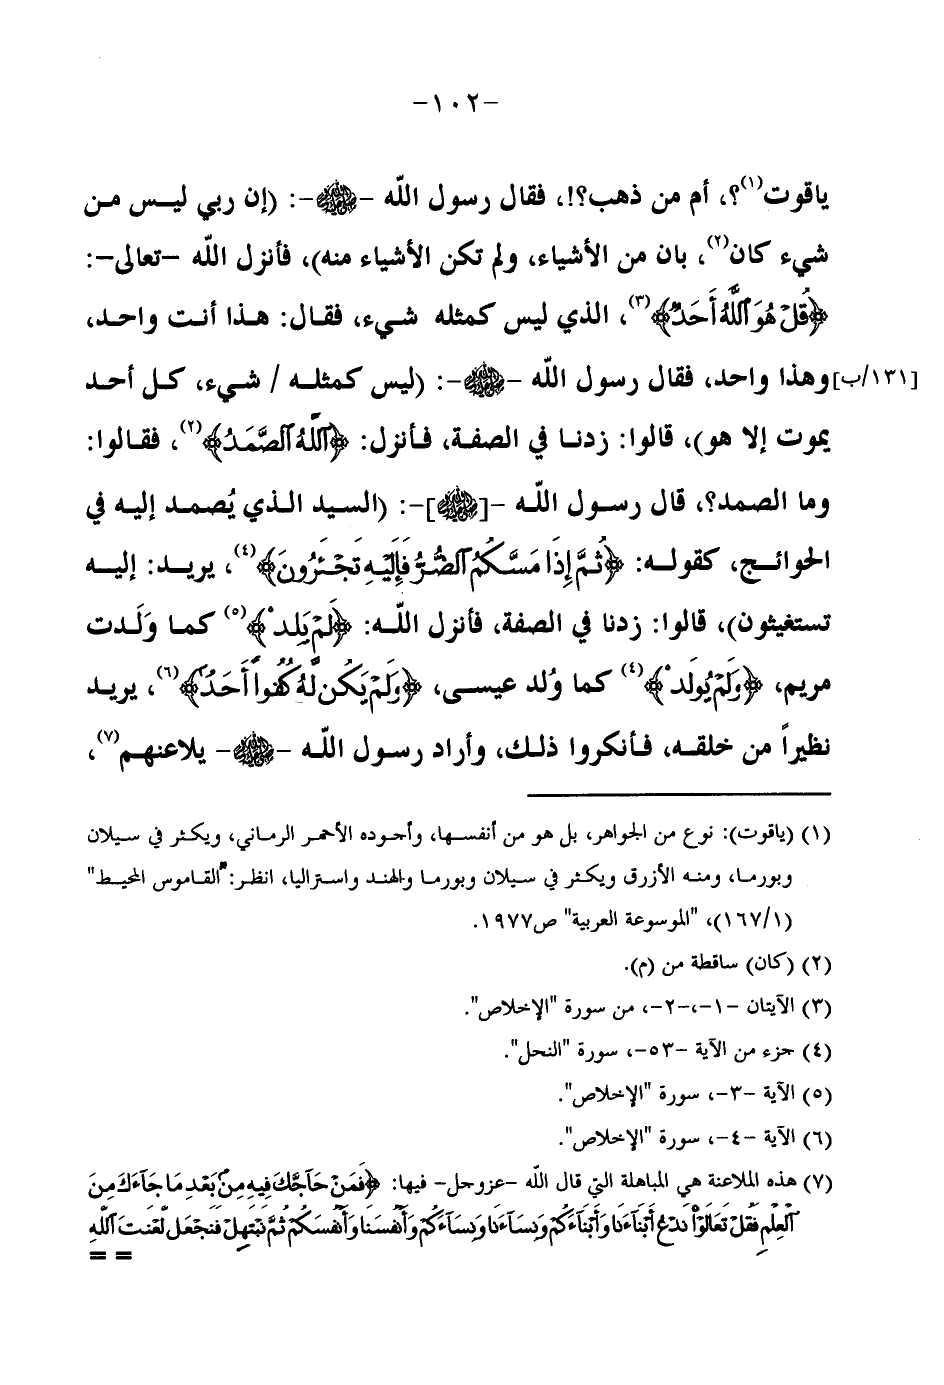 -١٠٢-
ياقوت(١)؟، أم من ذهب؟!، فقال رسول الله -ﷺ-: (إن ربي ليس من
شيء كان(٢)، بان من الأشياء، ولم تكن الأشياء منه)، فأنزل الله -تعالى-:
﴿قُلْ هُوَ ٱللَّهُ أَحَدٌ﴾(٣)، الذي ليس كمثله شيء، فقال: هذا أنت واحد،
[١٣١/ب] وهذا واحد، فقال رسول الله -ﷺ-: (ليس كمثله / شيء، كل أحد
يموت إلا هو)، قالوا: زدنا في الصفة، فأنزل: ﴿ٱللَّهُ ٱلصَّمَدُ﴾(٢)، فقالوا:
وما الصمد؟، قال رسول الله -[ﷺ]-: (السيد الذي يُصمد إليه في
الحوائج، كقوله: ﴿ثُمَّ إِذَا مَسَّكُمُ ٱلضُّرُّ فَإِلَيْهِ تَجْـَٔرُونَ﴾(٤)، يريد: إليه
تستغيثون)، قالوا: زدنا في الصفة، فأنزل الله: ﴿لَمْ يَلِدْ﴾(٥) كما وَلَدت
مريم، ﴿وَلَمْ يُولَدْ﴾(٤) كما وُلد عيسى، ﴿وَلَمْ يَكُن لَّهُۥ كُفُوًا أَحَدٌۢ﴾(٦)، يريد
نظيراً من خلقه، فأنكروا ذلك، وأراد رسول الله -ﷺ- يلاعنهم(٧)،
(١) (ياقوت): نوع من الجواهر، بل هو من أنفسها، وأجوده الأحمر الرماني، ويكثر في سيلان
وبورما، ومنه الأزرق ويكثر في سيلان وبورما والهند واستراليا، انظر: "القاموس المحيط"
(١٦٧/١)، "الموسوعة العربية" ص١٩٧٧.
(٢) (كان) ساقطة من (م).
(٣) الآيتان -١-،-٢-، من سورة "الإخلاص".
(٤) جزء من الآية -٥٣-، سورة "النحل".
(٥) الآية -٣-، سورة "الإخلاص".
(٦) الآية -٤-، سورة "الإخلاص".
(٧) هذه الملاعنة هي المباهلة التي قال الله -عزوجل- فيها: ﴿فَمَنْ حَآجَّكَ فِيهِ مِنۢ بَعْدِ مَا جَآءَكَ مِنَ
ٱلْعِلْمِ فَقُلْ تَعَالَوْا۟ نَدْعُ أَبْنَآءَنَا وَأَبْنَآءَكُمْ وَنِسَآءَنَا وَنِسَآءَكُمْ وَأَنفُسَنَا وَأَنفُسَكُمْ ثُمَّ نَبْتَهِلْ فَنَجْعَل لَّعْنَتَ ٱللَّهِ
= =